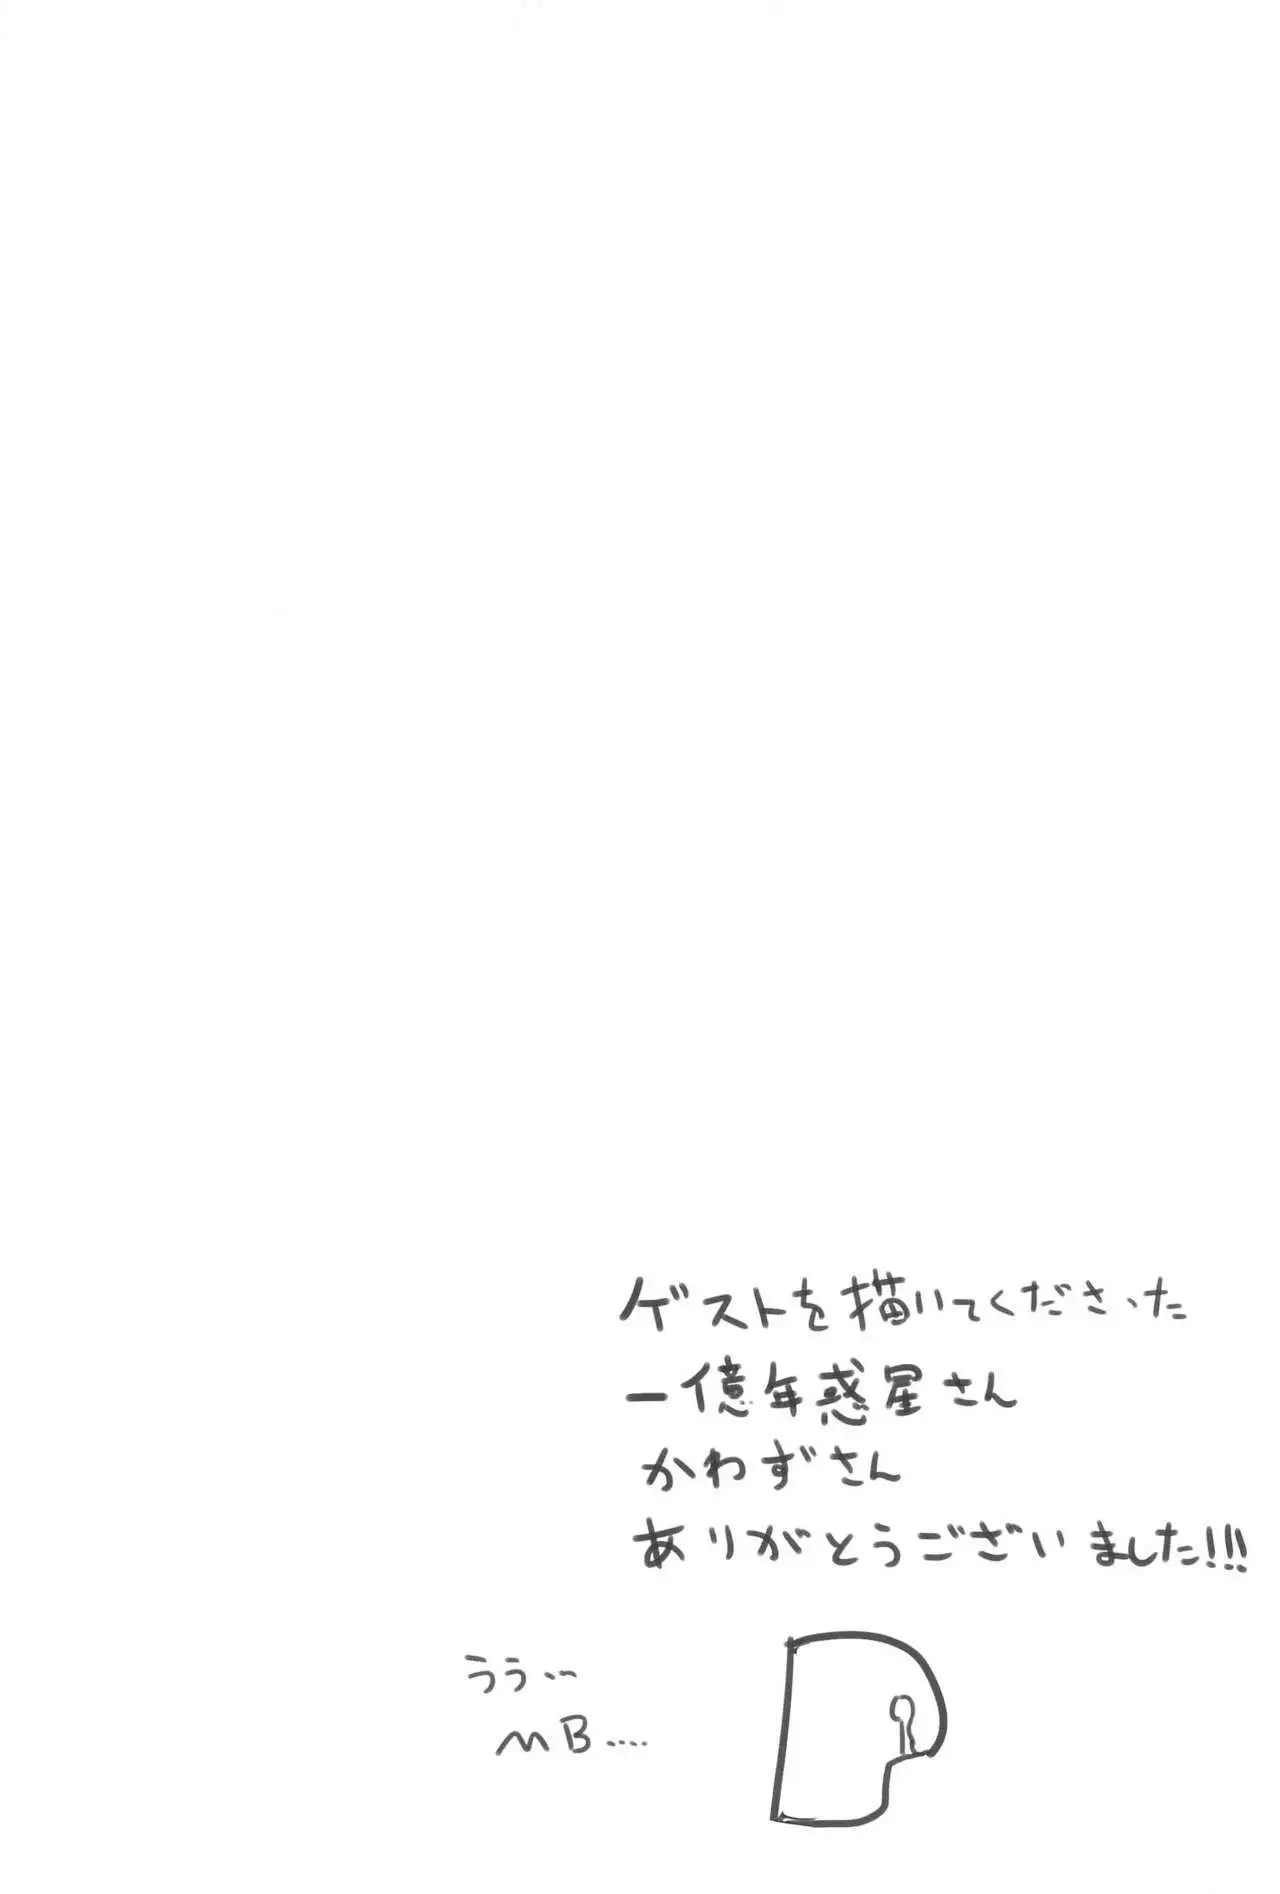 ゲストを描いてくださった
一億年惑星さん
かわずさん
ありがとうございました!!!
うう…
MB....